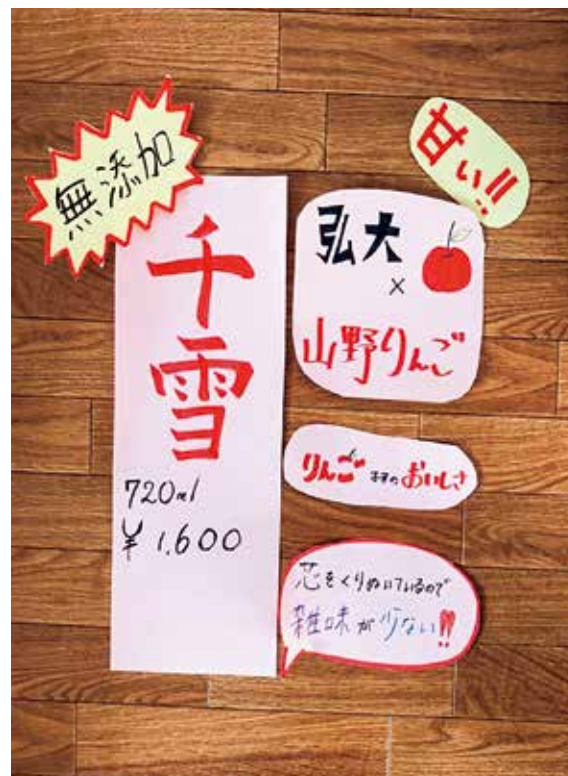 無添加
千雪
720ml
¥1,600
甘い!!
弘大
×
山野りんご
りんご本来のおいしさ
芯をくりぬいているので
雑味が少ない!!